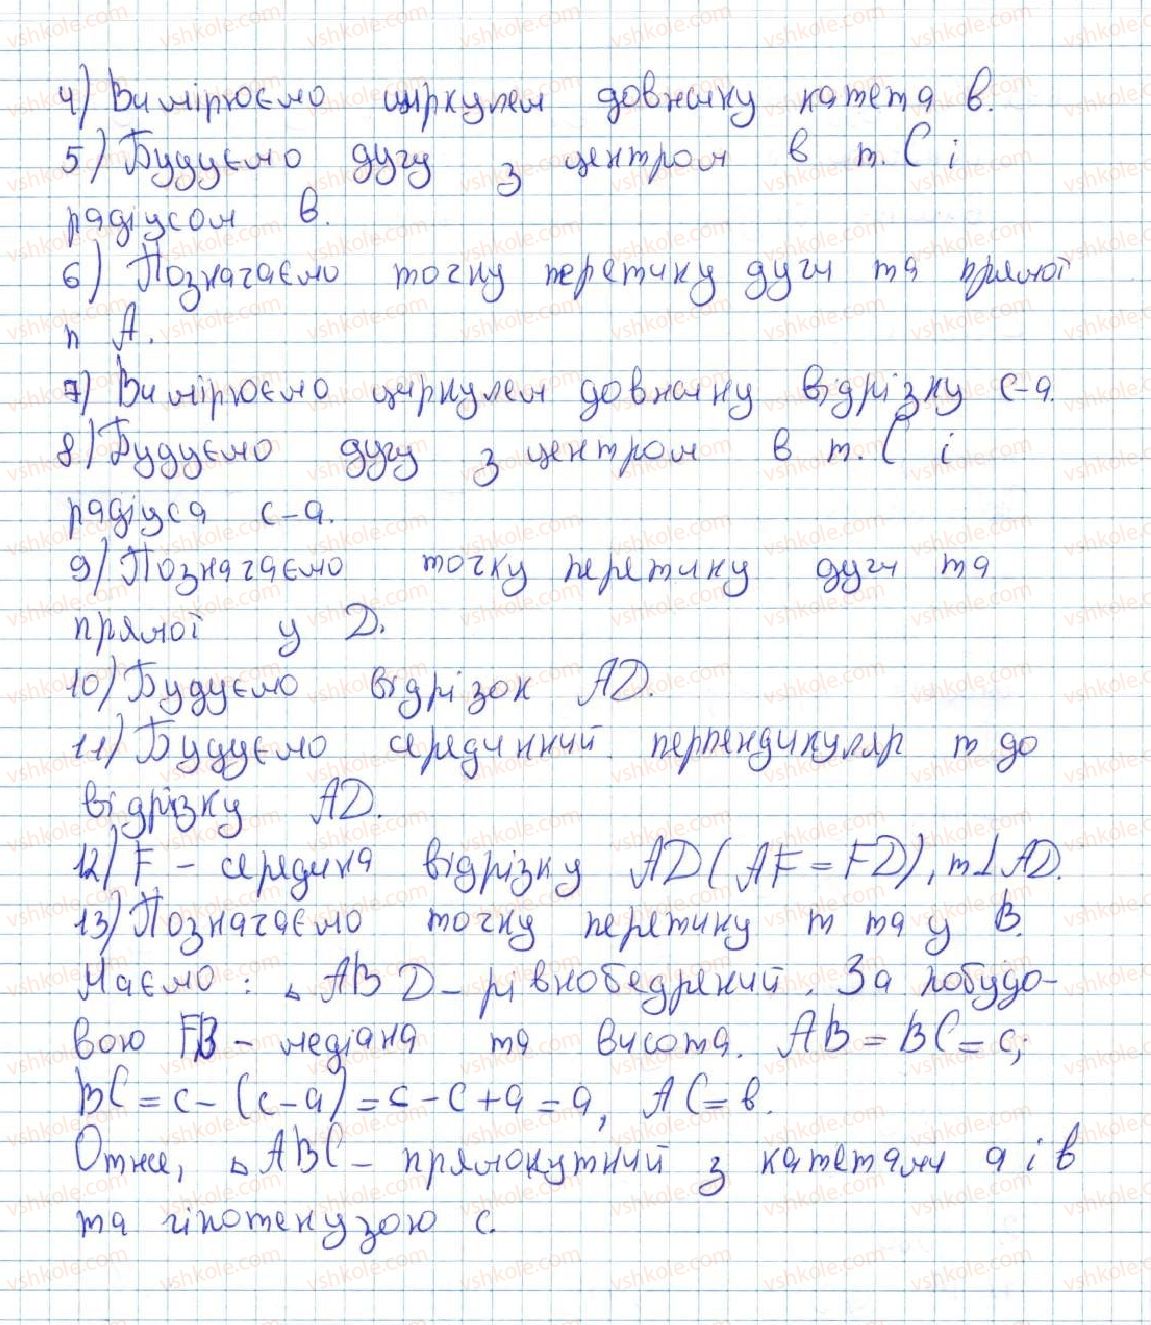 4) Вимірюємо циркулем довжину катета в.
5) Будуємо дугу з центром в т. С і
радіусом в.
6) Позначаємо точку перетину дуги та прямої
п А.
7) Вимірюємо циркулем довжину відрізку с-а.
8) Будуємо дугу з центром в т. С і
радіуса с-а.
9) Позначаємо точку перетину дуги та
прямої у D.
10) Будуємо відрізок AD.
11) Будуємо серединний перпендикуляр m до
відрізку AD.
12) F - середина відрізку AD (AF = FD), m⊥AD.
13) Позначаємо точку перетину m та у В.
Маємо: △ABD - рівнобедрений. За побудо-
вою FB - медіана та висота. AB = BC = c;
BC = c - (c-a) = c - c + a = a, AC = в.
Отже, △ABC - прямокутний з катетами а і в
та гіпотенузою с.